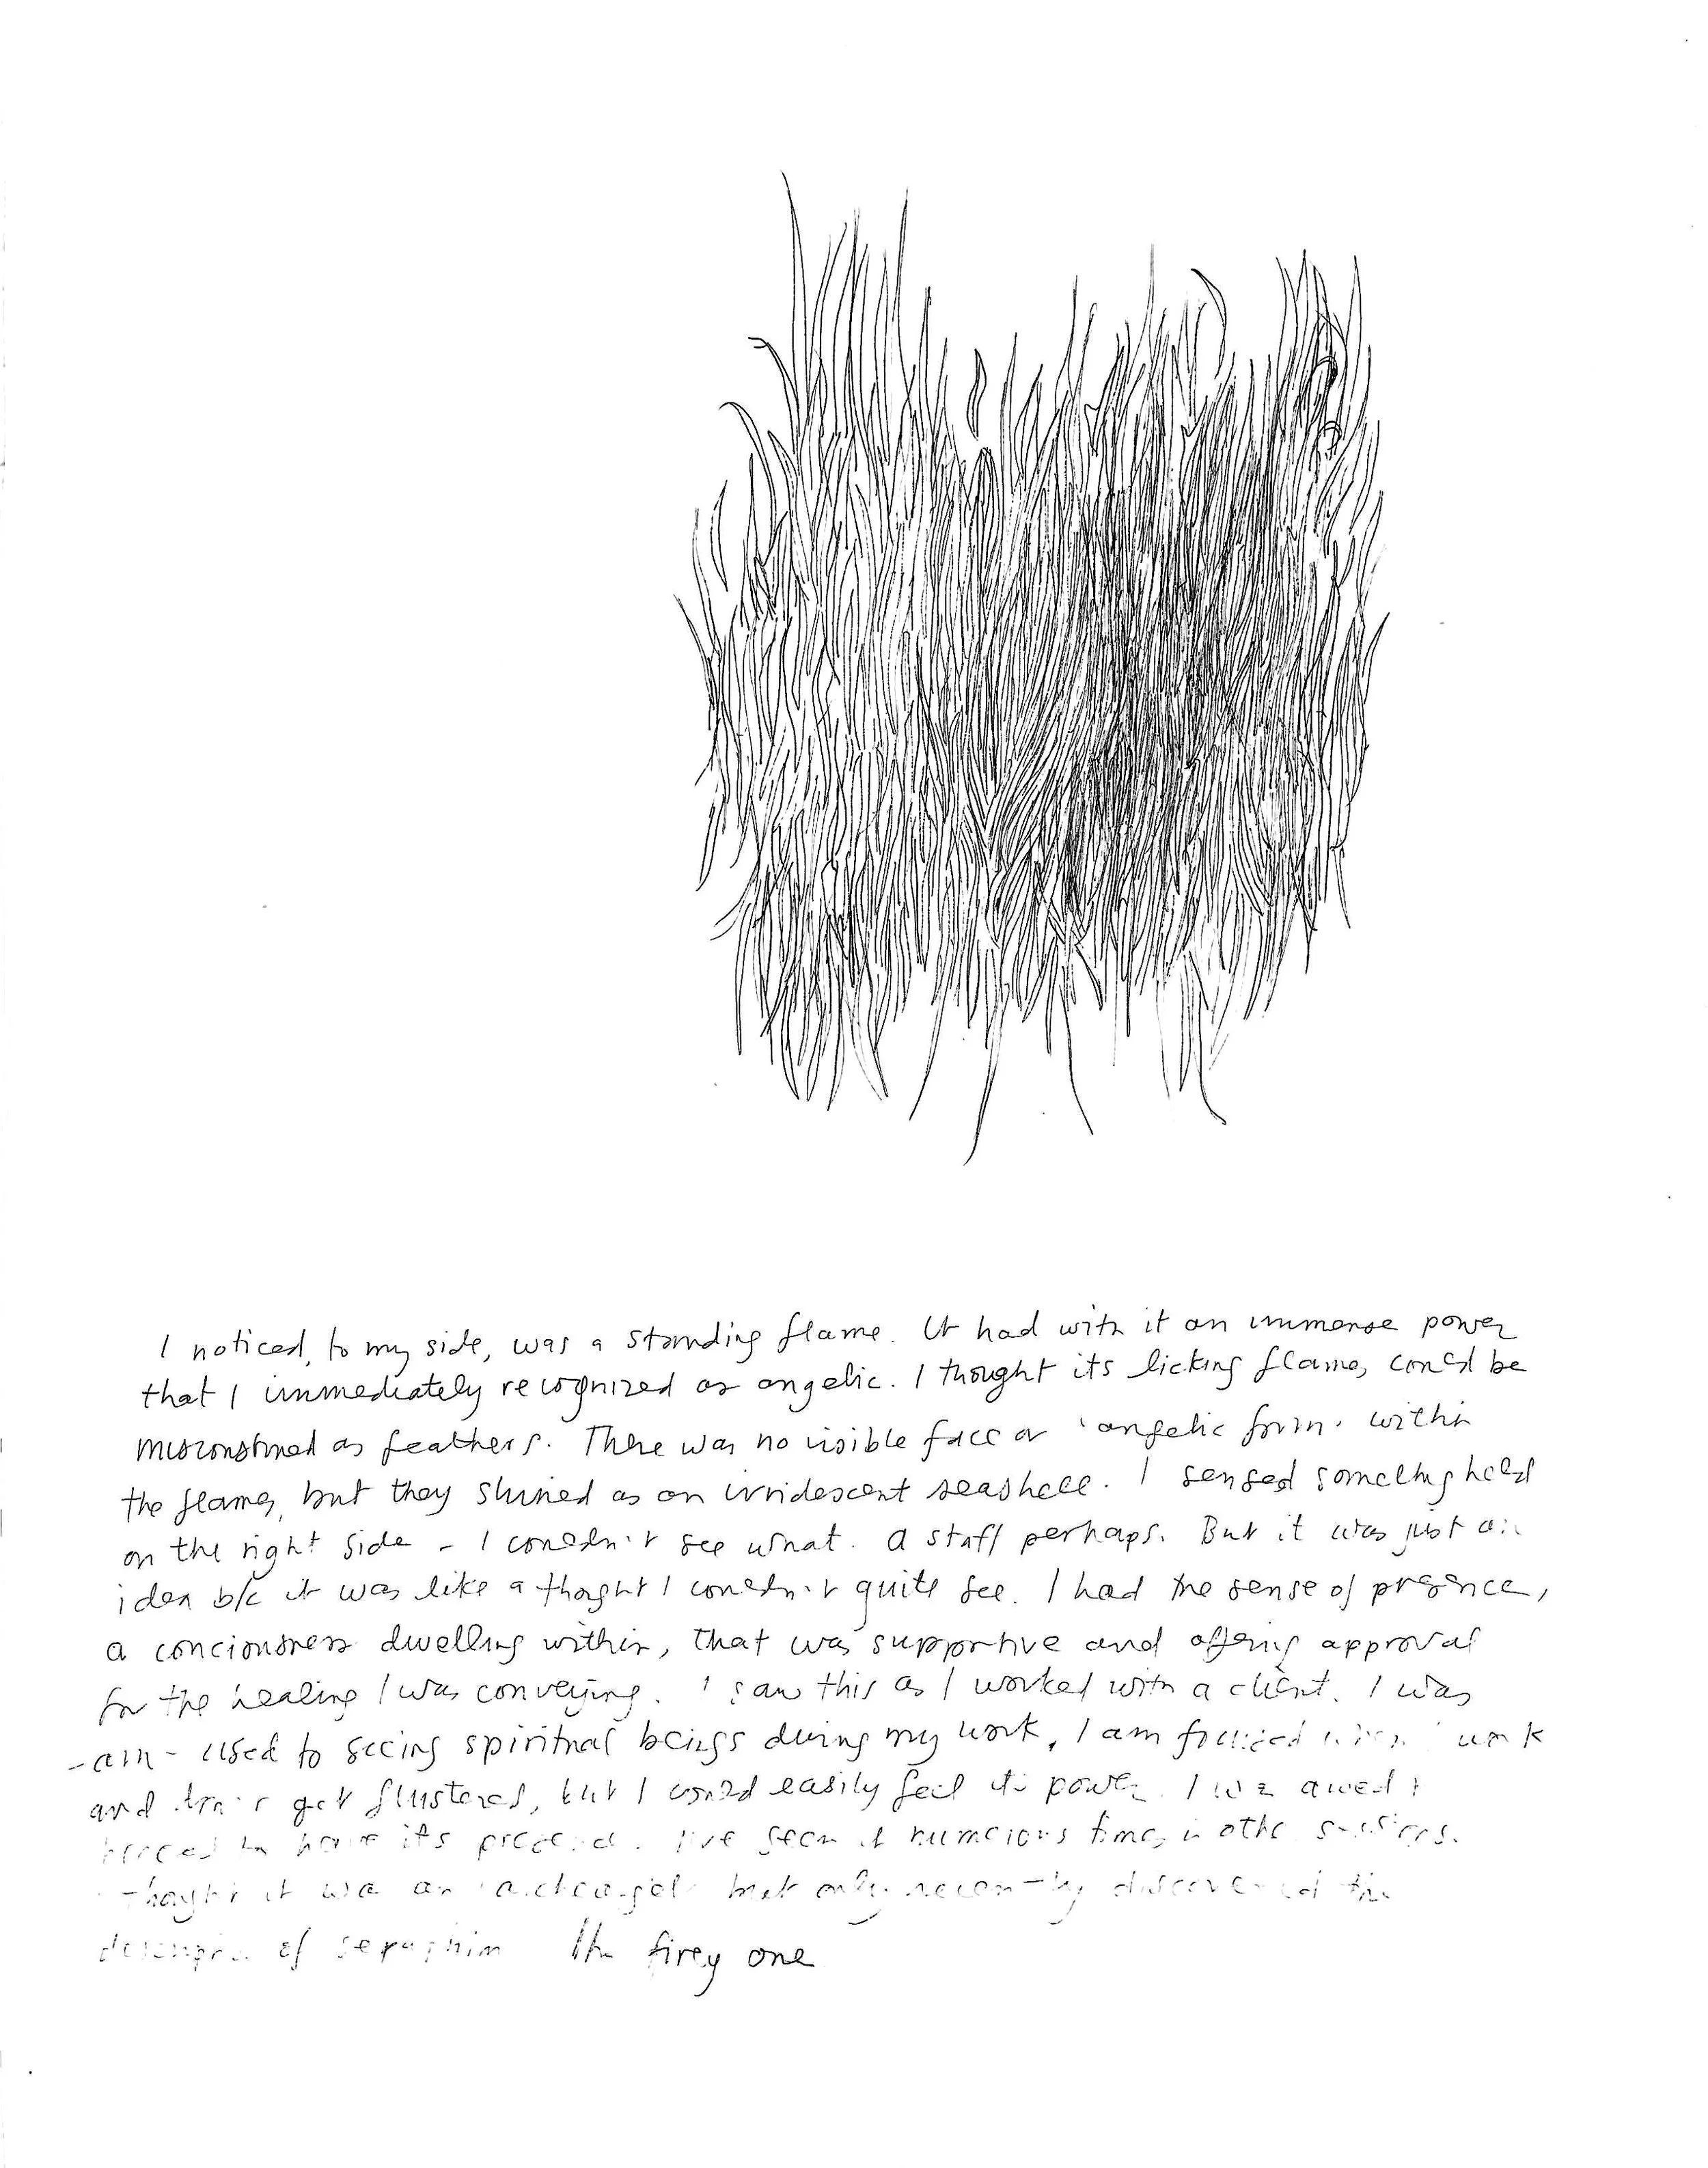 I noticed, to my side, was a standing flame. It had with it an immense power
that I immediately recognized as angelic. I thought its licking flames could be
misconstrued as feathers. There was no visible face or 'angelic form' within
the flames, but they shined as an irridescent seashell. I sensed something held
on the right side - I couldn't see what. A staff perhaps. But it was just an
idea b/c it was like a thought I couldn't quite see. I had the sense of presence,
a conciousness dwelling within, that was supportive and offering approval
for the healing I was conveying. I saw this as I worked with a client. I was
-am- used to seeing spiritual beings during my work, I am focused when I work
and don't get flustered, but I could easily feel its power. I was awed &
to have its. I've seen it numerous times in other sessions.
thought it was an 'archangel' but only recently discovered the
of seraphim the firey one